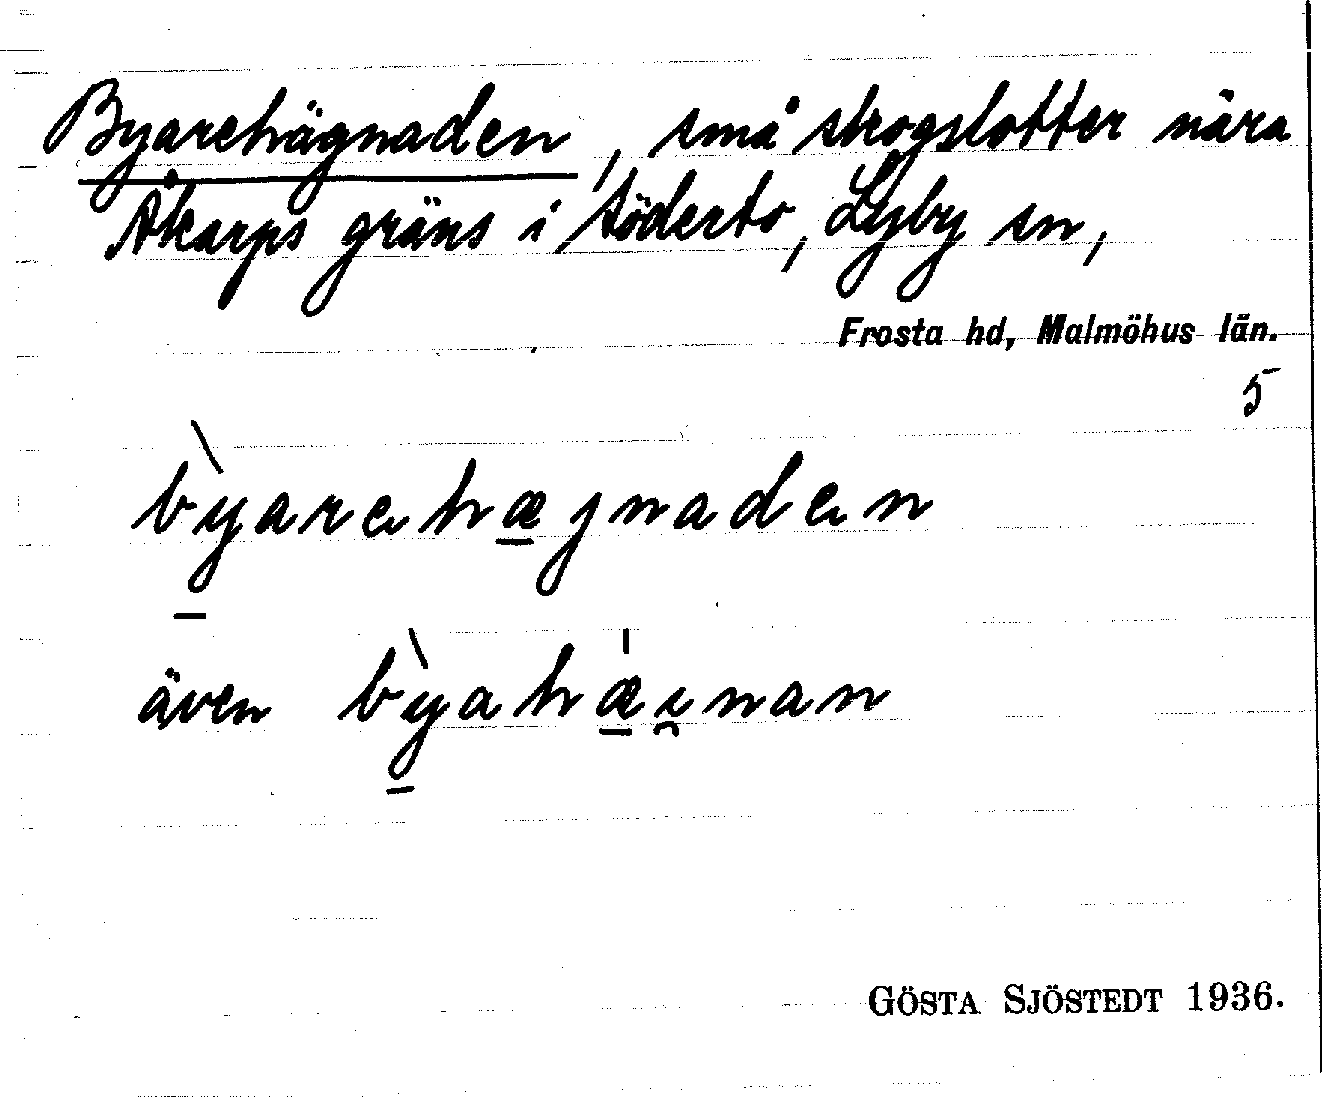 Byarehägnaden, små skogslotter nära
Åkarps gräns i Söderto, Lyby sn,
Frosta hd, Malmöhus län.
5
b̀y̱arehæ̱jnaden
även b̀y̱ahǽ̱i̯nan
GÖSTA SJÖSTEDT 1936.